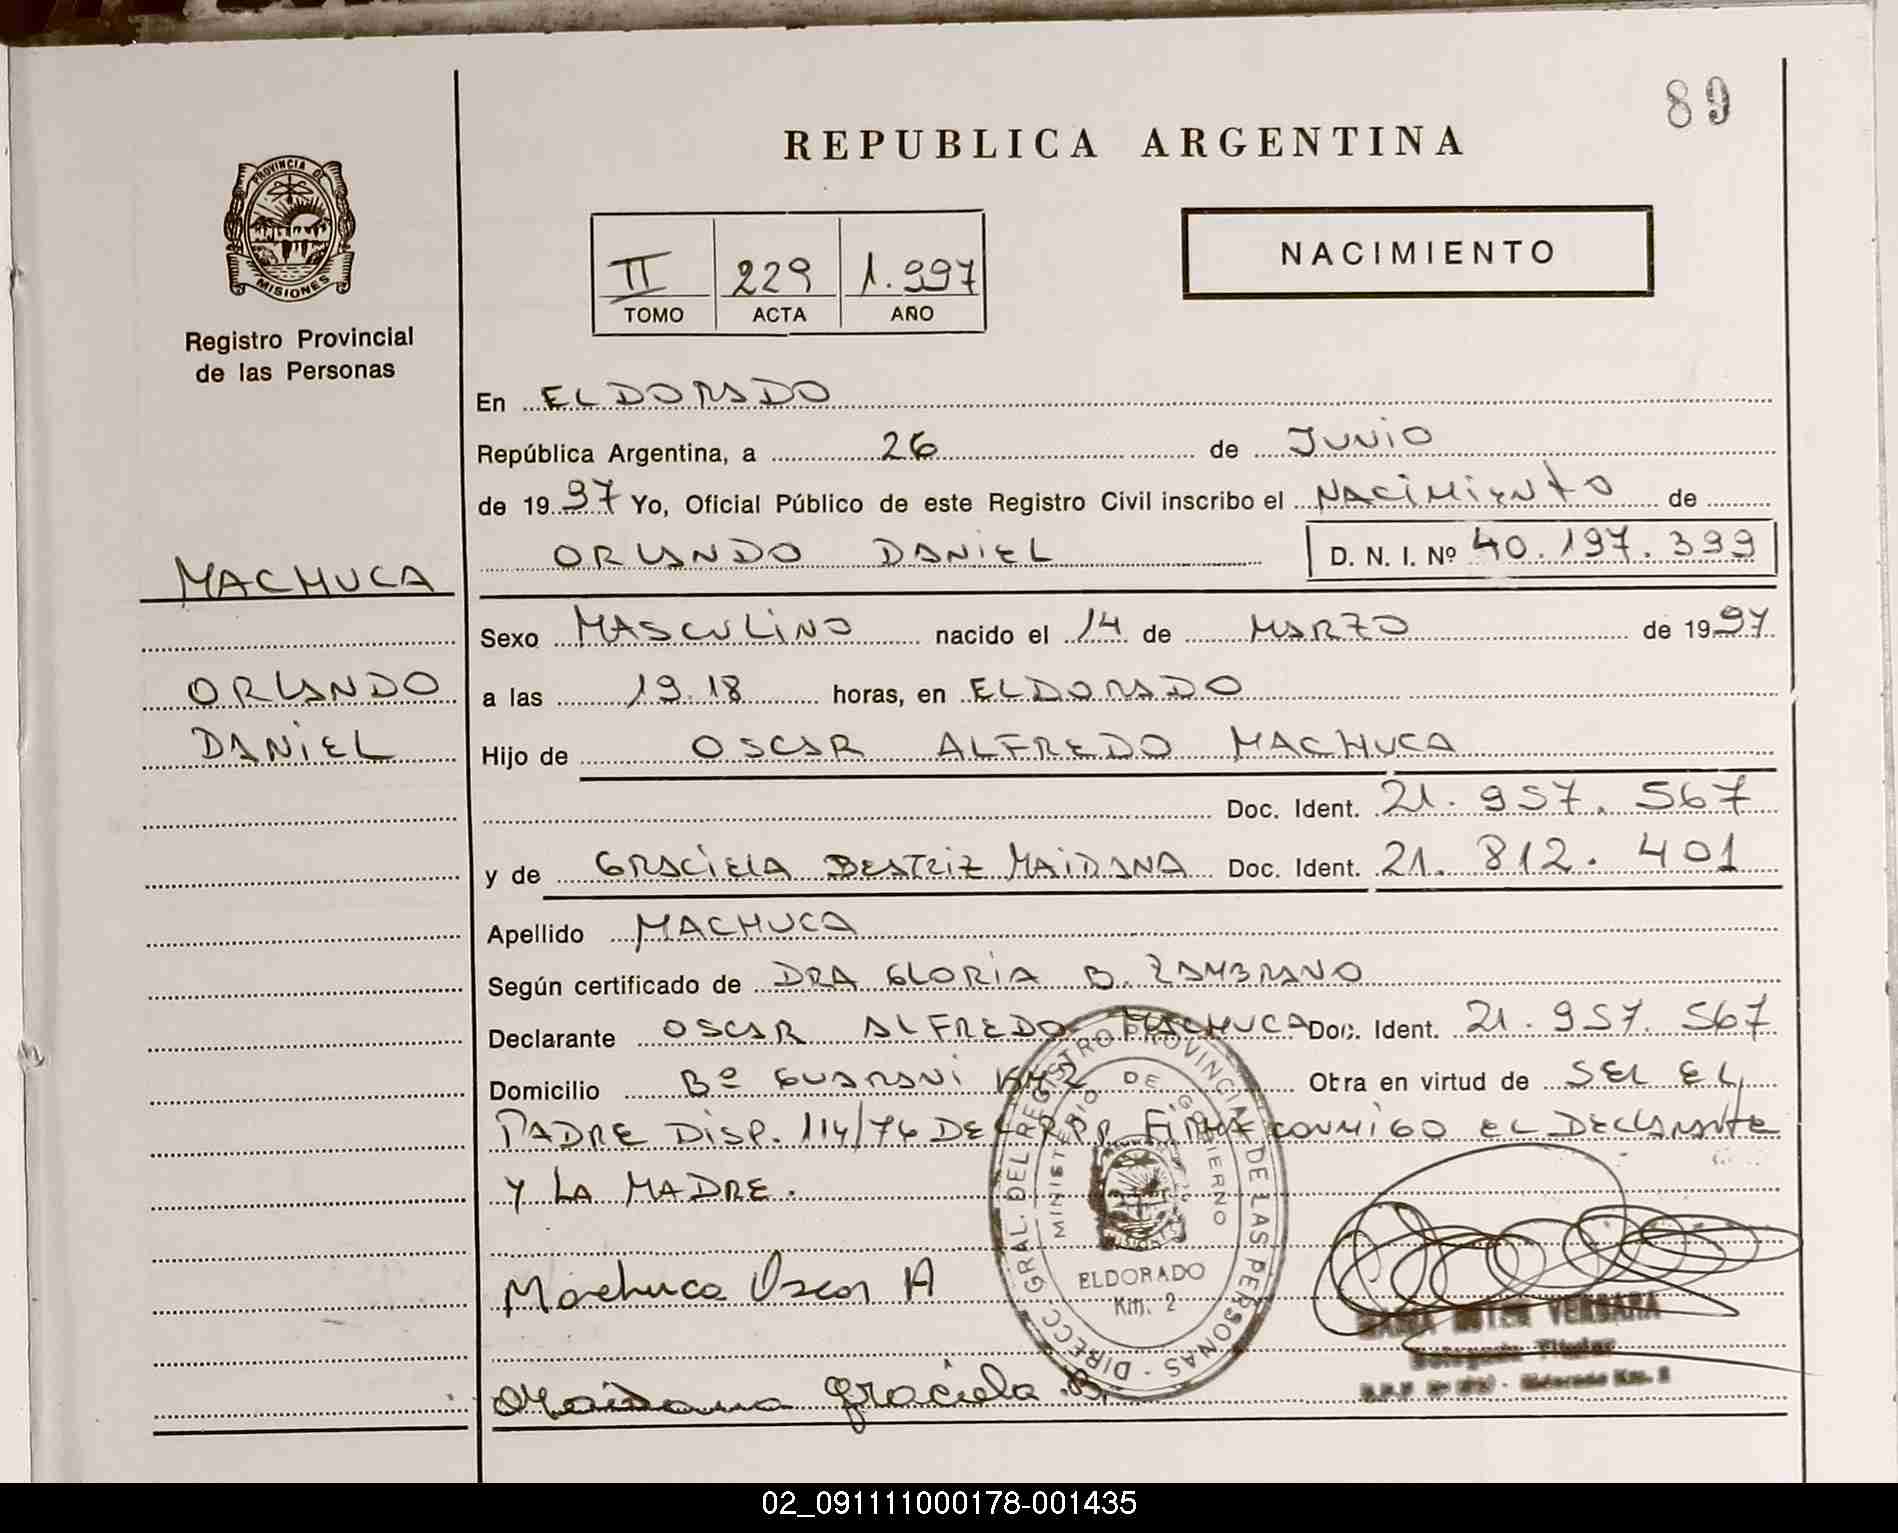 89
REPUBLICA ARGENTINA
PROVINCIA DE
MISIONES
Registro Provincial
de las Personas
II 229 1.997
TOMO ACTA AÑO
NACIMIENTO
En ELDORADO
República Argentina, a 26 de JUNIO
de 1997 Yo, Oficial Público de este Registro Civil inscribo el NACIMIENTO de
ORLANDO DANIEL D. N. I. Nº 40.197.399
MACHUCA
ORLANDO
DANIEL
Sexo MASCULINO nacido el 14 de MARZO de 1997
a las 19.18 horas, en ELDORADO
Hijo de OSCAR ALFREDO MACHUCA
Doc. Ident. 21.957.567
y de GRACIELA BEATRIZ MAIDANA Doc. Ident. 21.812.401
Apellido MACHUCA
Según certificado de DRA GLORIA B. ZAMBRANO
Declarante OSCAR ALFREDO MACHUCA Doc. Ident. 21.957.567
Domicilio Bº GUARANI KM 2 Obra en virtud de SER EL
PADRE DISP. 114/76 DEL R.P.P. FIRMA CONMIGO EL DECLARANTE
Y LA MADRE.
Machuca Oscar A
Maidana Graciela B.
DIRECC. GRAL. DEL REGISTRO PROVINCIAL DE LAS PERSONAS
MINISTERIO DE GOBIERNO
ELDORADO
Km. 2
VERGARA
Titular
02_091111000178-001435